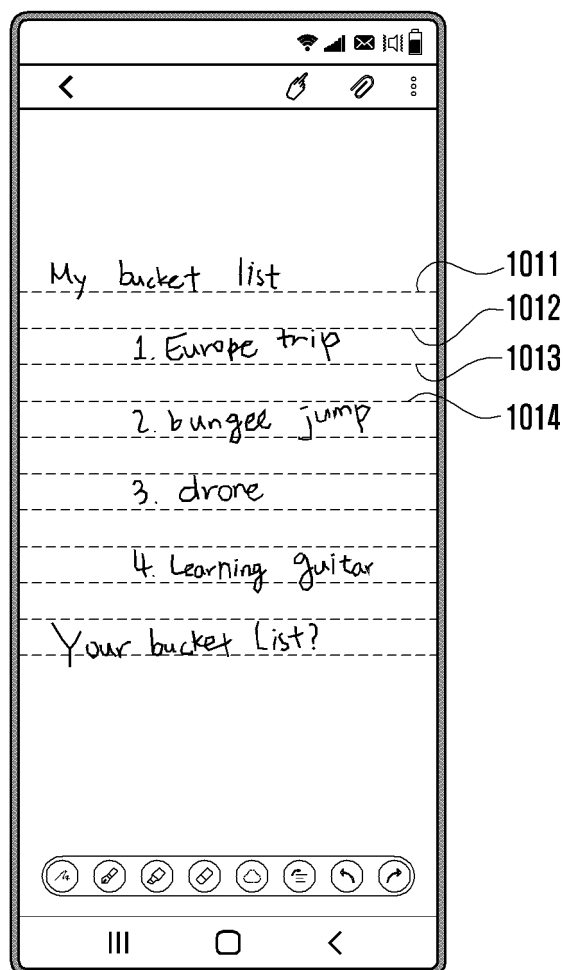 My bucket list
1. Europe trip
2. bungee jump
3. drone
4. Learning guitar
Your bucket List?
1011
1012
1013
1014